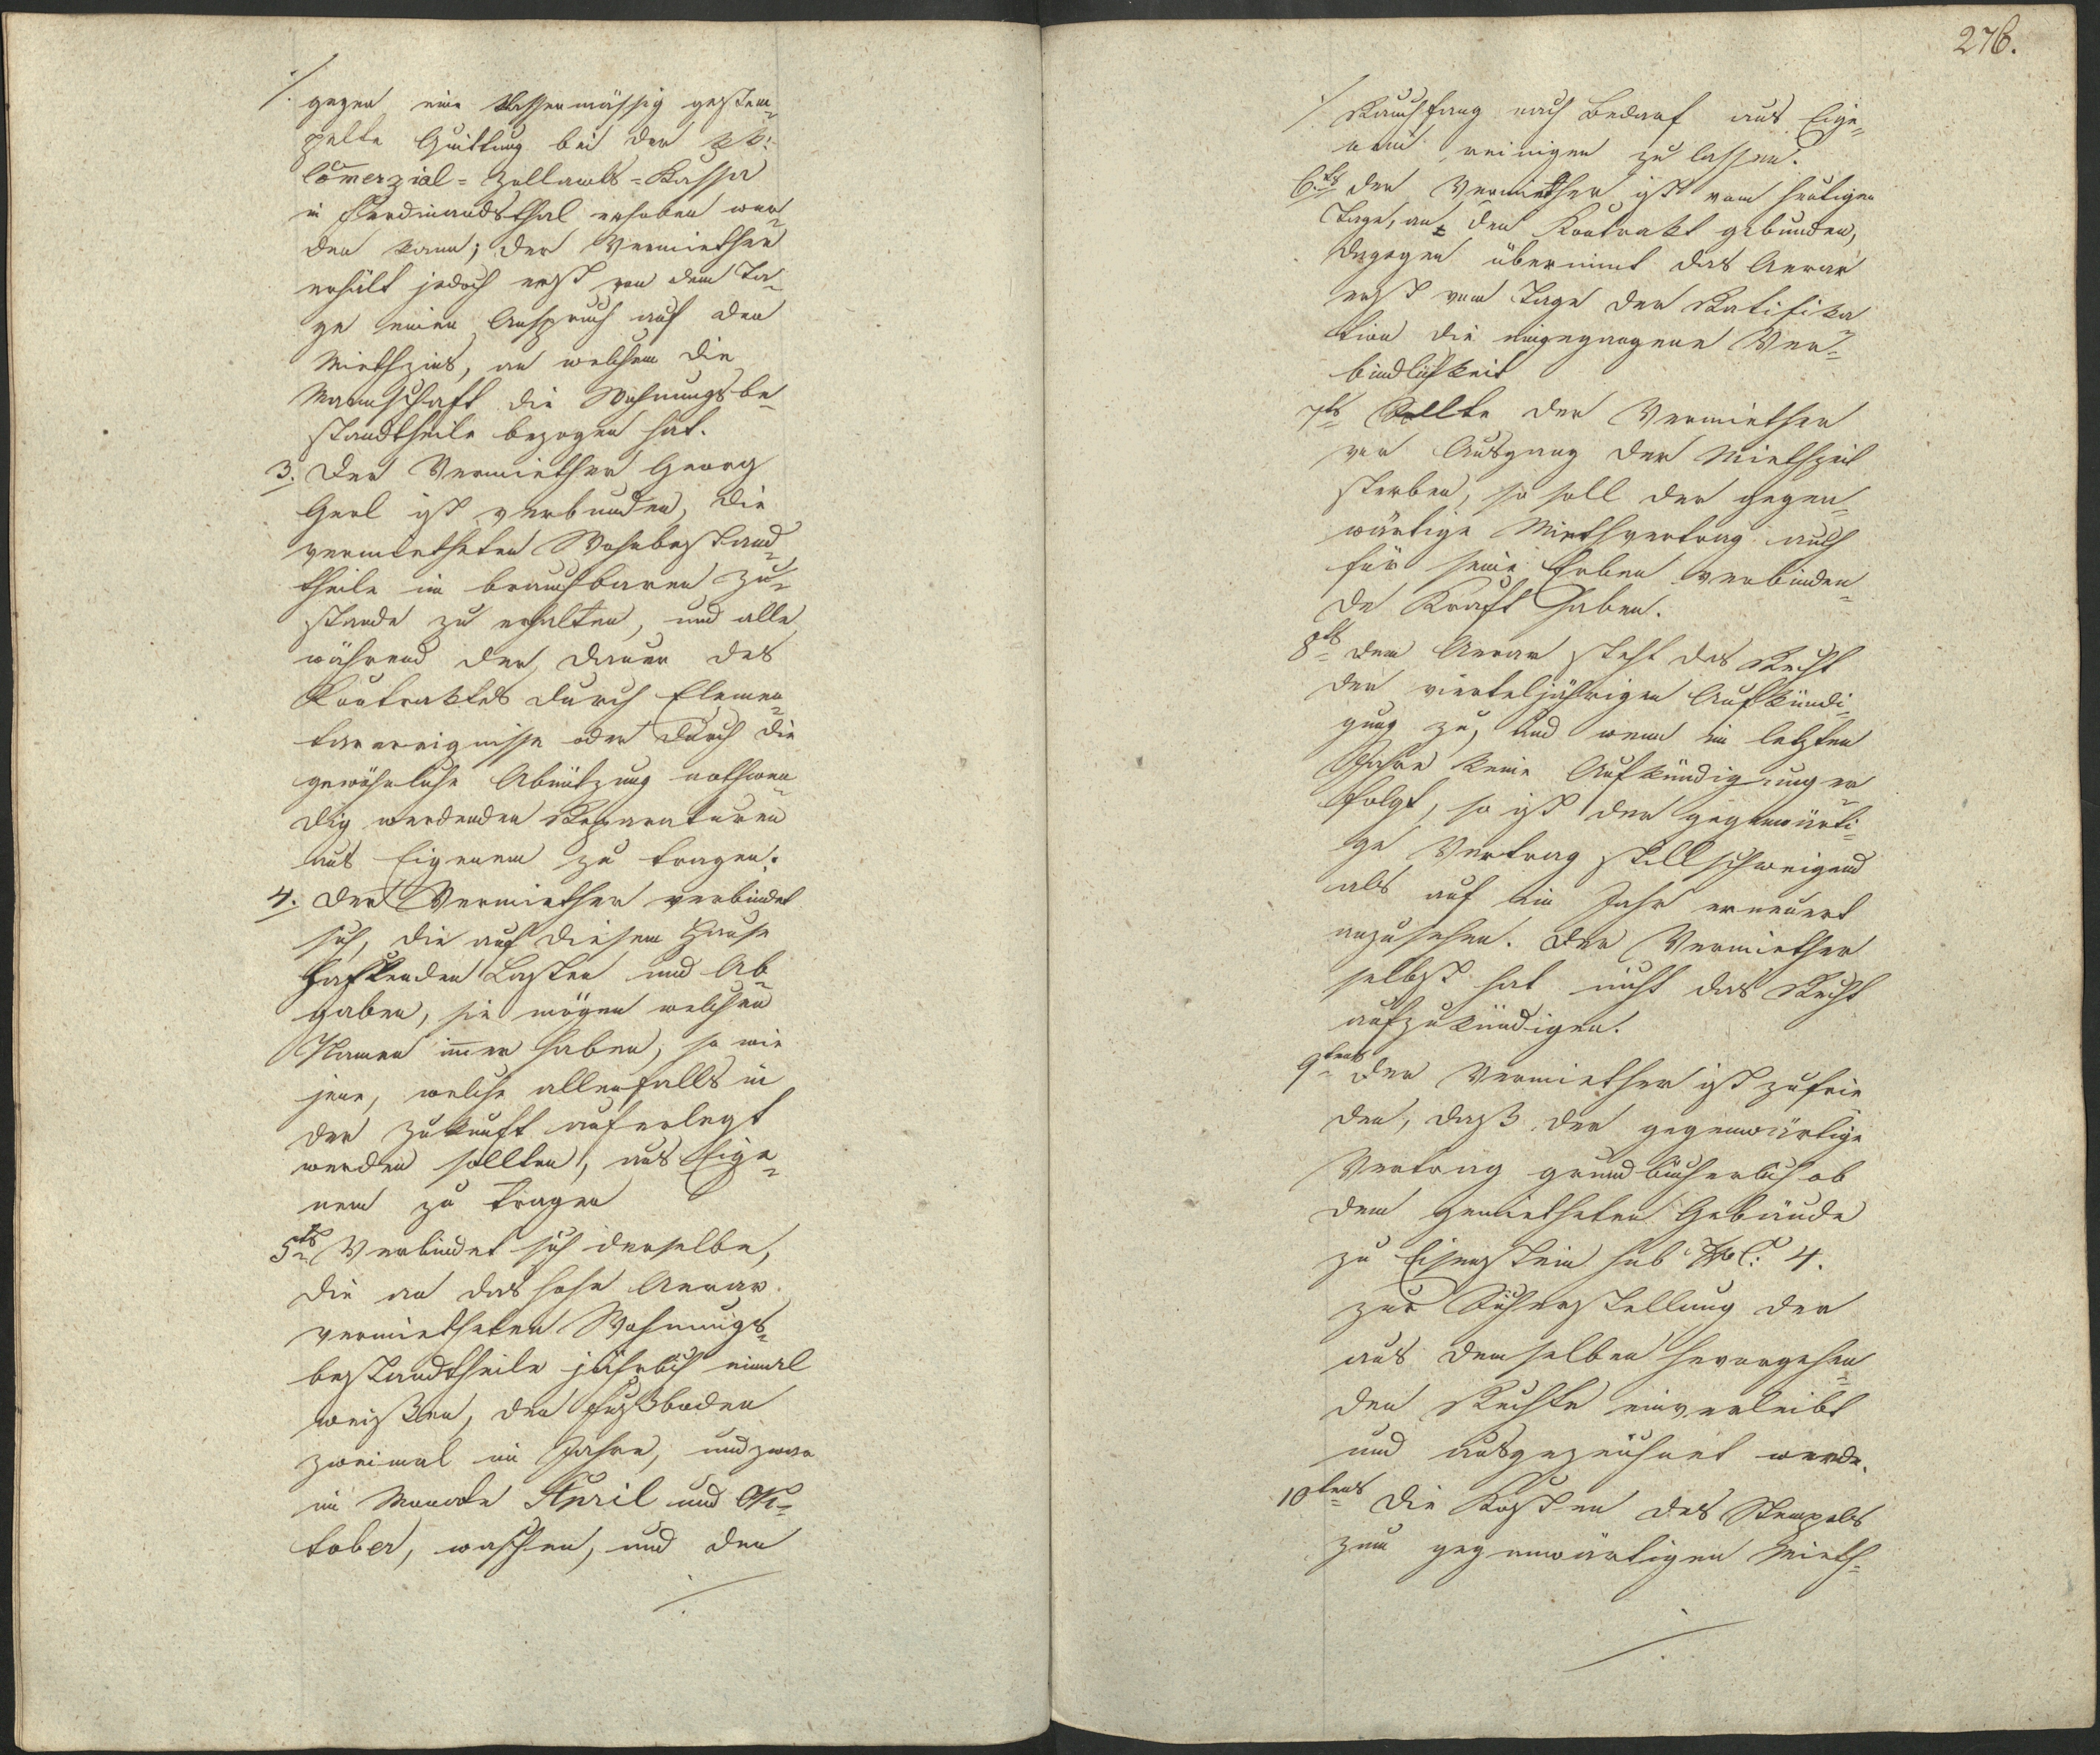 ./. gegen eine klassenmässig gestem=
pelte Quittung bei der kk:
Com̅erzial=Zollamts=Kassa
in Ferdinandsthal erhoben wer=
den kann; der Vermiether
erhält jedoch erst von dem Ta=
ge einen Anspruch auf den
Miethzins, an welchem die
Mannschaft die Wohnungsbe=
standtheile bezogen hat.
3. Der Vermiether Georg
Gerl ist verbunden, die
vermietheten Wohnbestand=
theile im brauchbaren Zu=
stande zu erhalten, und alle
während der Dauer des
Kontraktes durch Elemen=
tarereignisse oder durch die
gewöhnliche Abnützung nothwen=
dig werdenden Reparaturen
aus Eigenem zu tragen.
4. Der Vermiether verbindet
sich, die auf diesem Hause
haftenden Lasten und Ab=
gaben, sie mögen welchen
Namen im̅er haben, so wie
jene, welche allenfalls in
der Zukunft auferlegt
werden sollten, aus Eige=
nem zu tragen
5ts Verbindet sich derselbe,
die an das hohe Aerar
vermietheten Wohnungs=
bestandtheile jährlich einmal
weißen, den Fußboden
zweimal im Jahre, und zwar
im Monate April und Ok=
tober, waschen, und den
./.
276.
./. Rauchfang nach Bedarf aus Eige=
nem reinigen zu lassen.
6ts Der Vermiether ist vom heutigen
Tage, an den Kontrakt gebunden,
dagegen übernimt das Aerar
erst vom Tage der Ratifika
tion die eingegangene Ver=
bindlichkeit
7ts Sollte der Vermiether
vor Ausgang der Miethzeit
sterben, so soll der gegen=
wärtige Miethvertrag auch
für seine Erben verbinden=
de Kraft haben.
8ts Dem Aerar steht das Recht
der vierteljährigen Aufkündi=
gung zu, und wenn im letzten
Jahre keine Aufkündigung er
folgt, so ist der gegenwärti=
ge Vertrag stillschweigend
als auf ein Jahr erneuert
anzusehen. Der Vermiether
selbst hat nicht das Recht
aufzukündigen.
9tens Der Vermiether ist zufrie
den, daß der gegenwärtige
Vertrag grundbücherlich ob
dem gemietheten Gebäude
zu Eisenstein sub NC: 4.
zur Sicherstellung der
aus demselben hervorgehen=
den Rechte einverleibt
und ausgezeichnet werde.
10tens Die Kosten des Stempels
zum gegenwärtigen Mieth=
./.